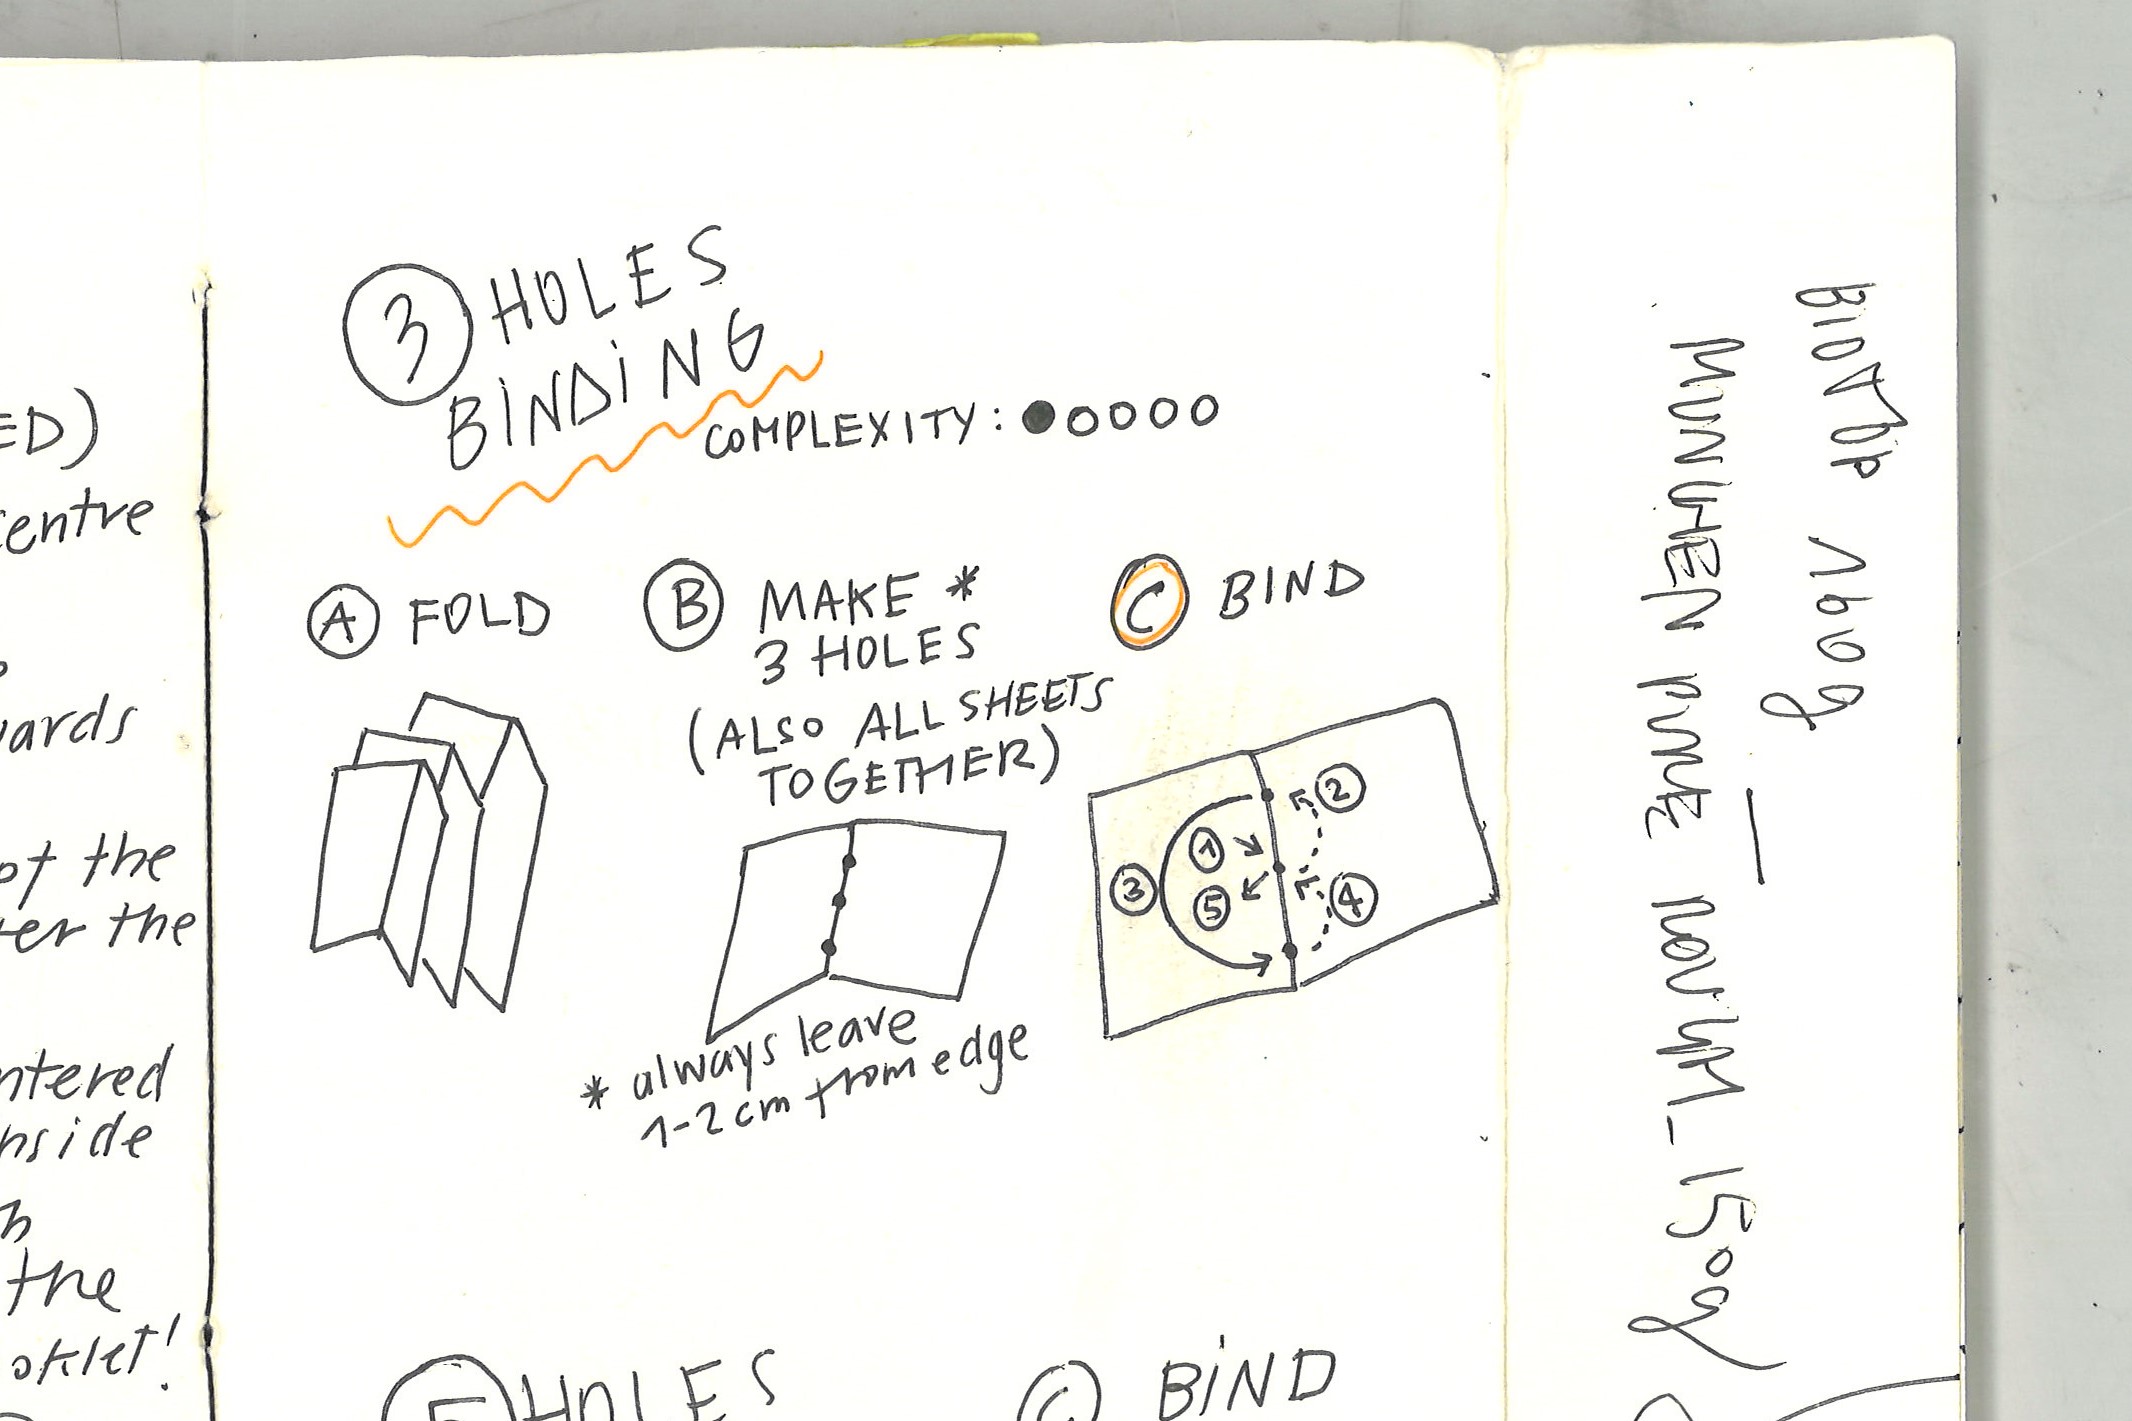 ED)
centre
wards
of the
ter the
ntered
nside
the
ooklet!
3 HOLES
BINDING
COMPLEXITY:
A FOLD
B MAKE *
3 HOLES
(ALSO ALL SHEETS
TOGETHER)
* always leave
1-2cm from edge
C BIND
1
2
3
4
5
5 HOLES
C BIND
BIOTOP
MUNKEN PURE
150g